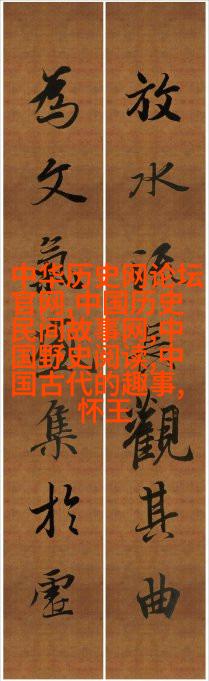 放水觀其曲
為文氣集於虛
中华历史网论坛
官网,中国历史
民间故事网,中
国野史阅读,中
国古代的趣事,
怀王